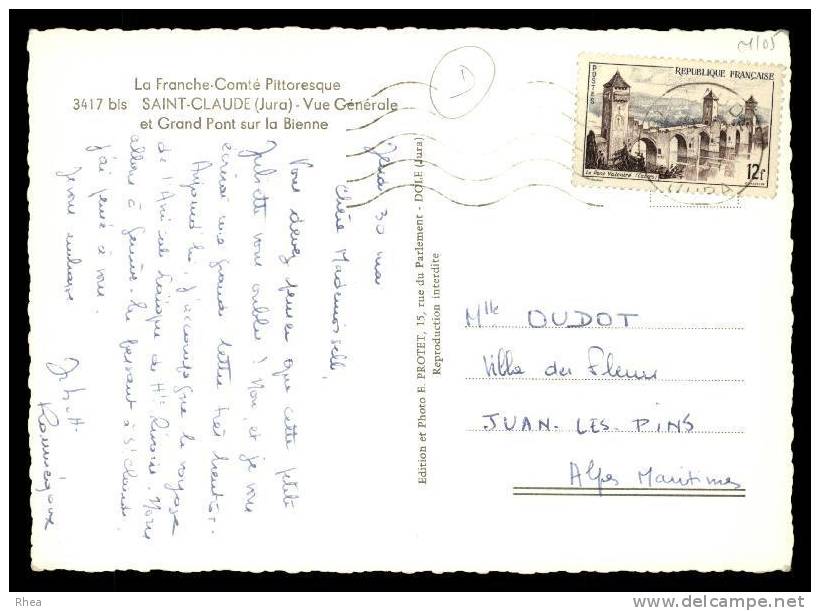 La Franche-Comté Pittoresque
3417 bis SAINT-CLAUDE (Jura) - Vue Générale
et Grand Pont sur la Bienne
Jeudi 30 mai
Chère Mademoiselle,
Vous devez penser que cette petite
Juliette vous oublie ! Non, et je vous
écrirai une grande lettre très bientôt.
Aujourd'hui, j'accompagne le voyage
de l'Amicale Laïque de Hte Rivoire. Nous
allons à Genève en passant à St Claude.
J'ai pensé à vous.
Je vous embrasse
Edition et Photo E. PROTET, 15, rue du Parlement - DOLE (Jura)
Reproduction interdite
POSTES
REPUBLIQUE FRANÇAISE
Le Pont Valentré (Cahors)
12f
Mlle OUDOT
Villa des Fleurs
JUAN-LES-PINS
Alpes Maritimes
Rhea
www.delcampe.net